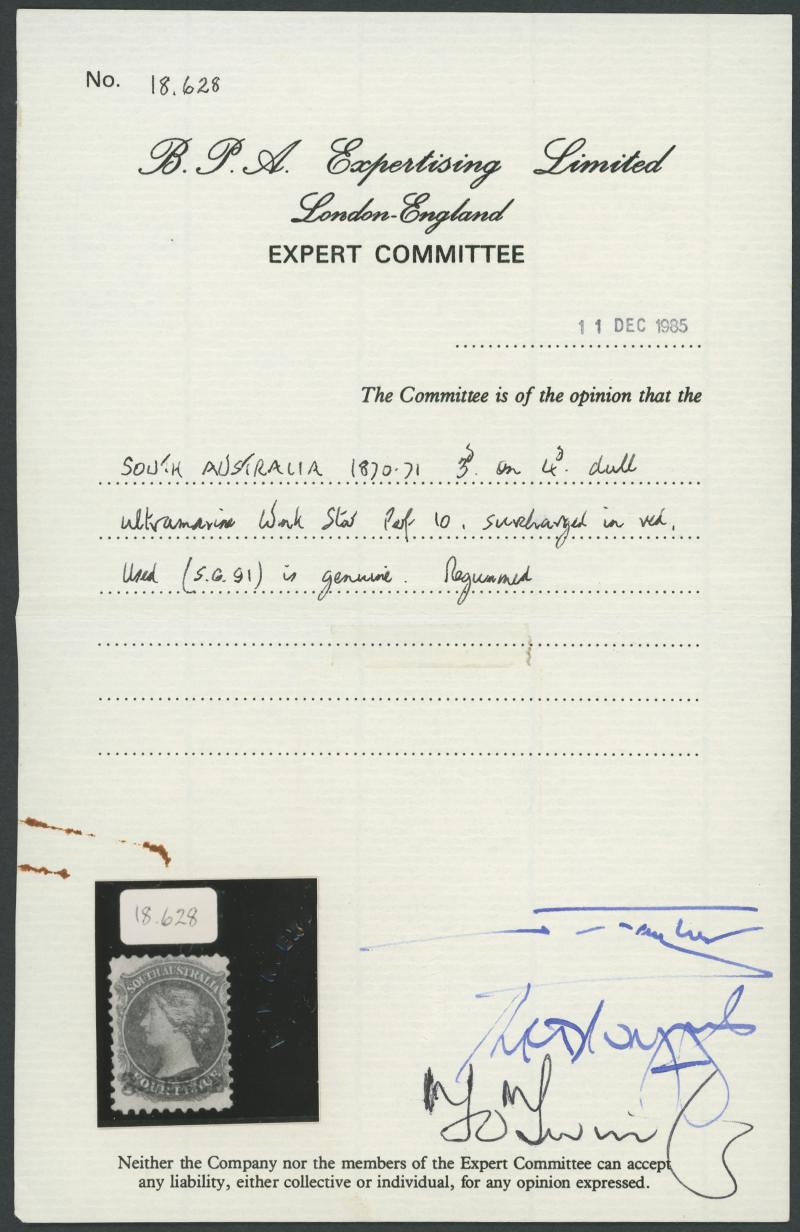 No. 18.628
B. P. A. Expertising Limited
London-England
EXPERT COMMITTEE
11 DEC 1985
The Committee is of the opinion that the
SOUTH AUSTRALIA 1870-71 3d. on 4d. dull
ultramarine Wmk Star Perf 10. surcharged in red.
Used (S.G. 91) is genuine. Regummed
18.628
SOUTH AUSTRALIA
FOUR PENCE
Neither the Company nor the members of the Expert Committee can accept
any liability, either collective or individual, for any opinion expressed.